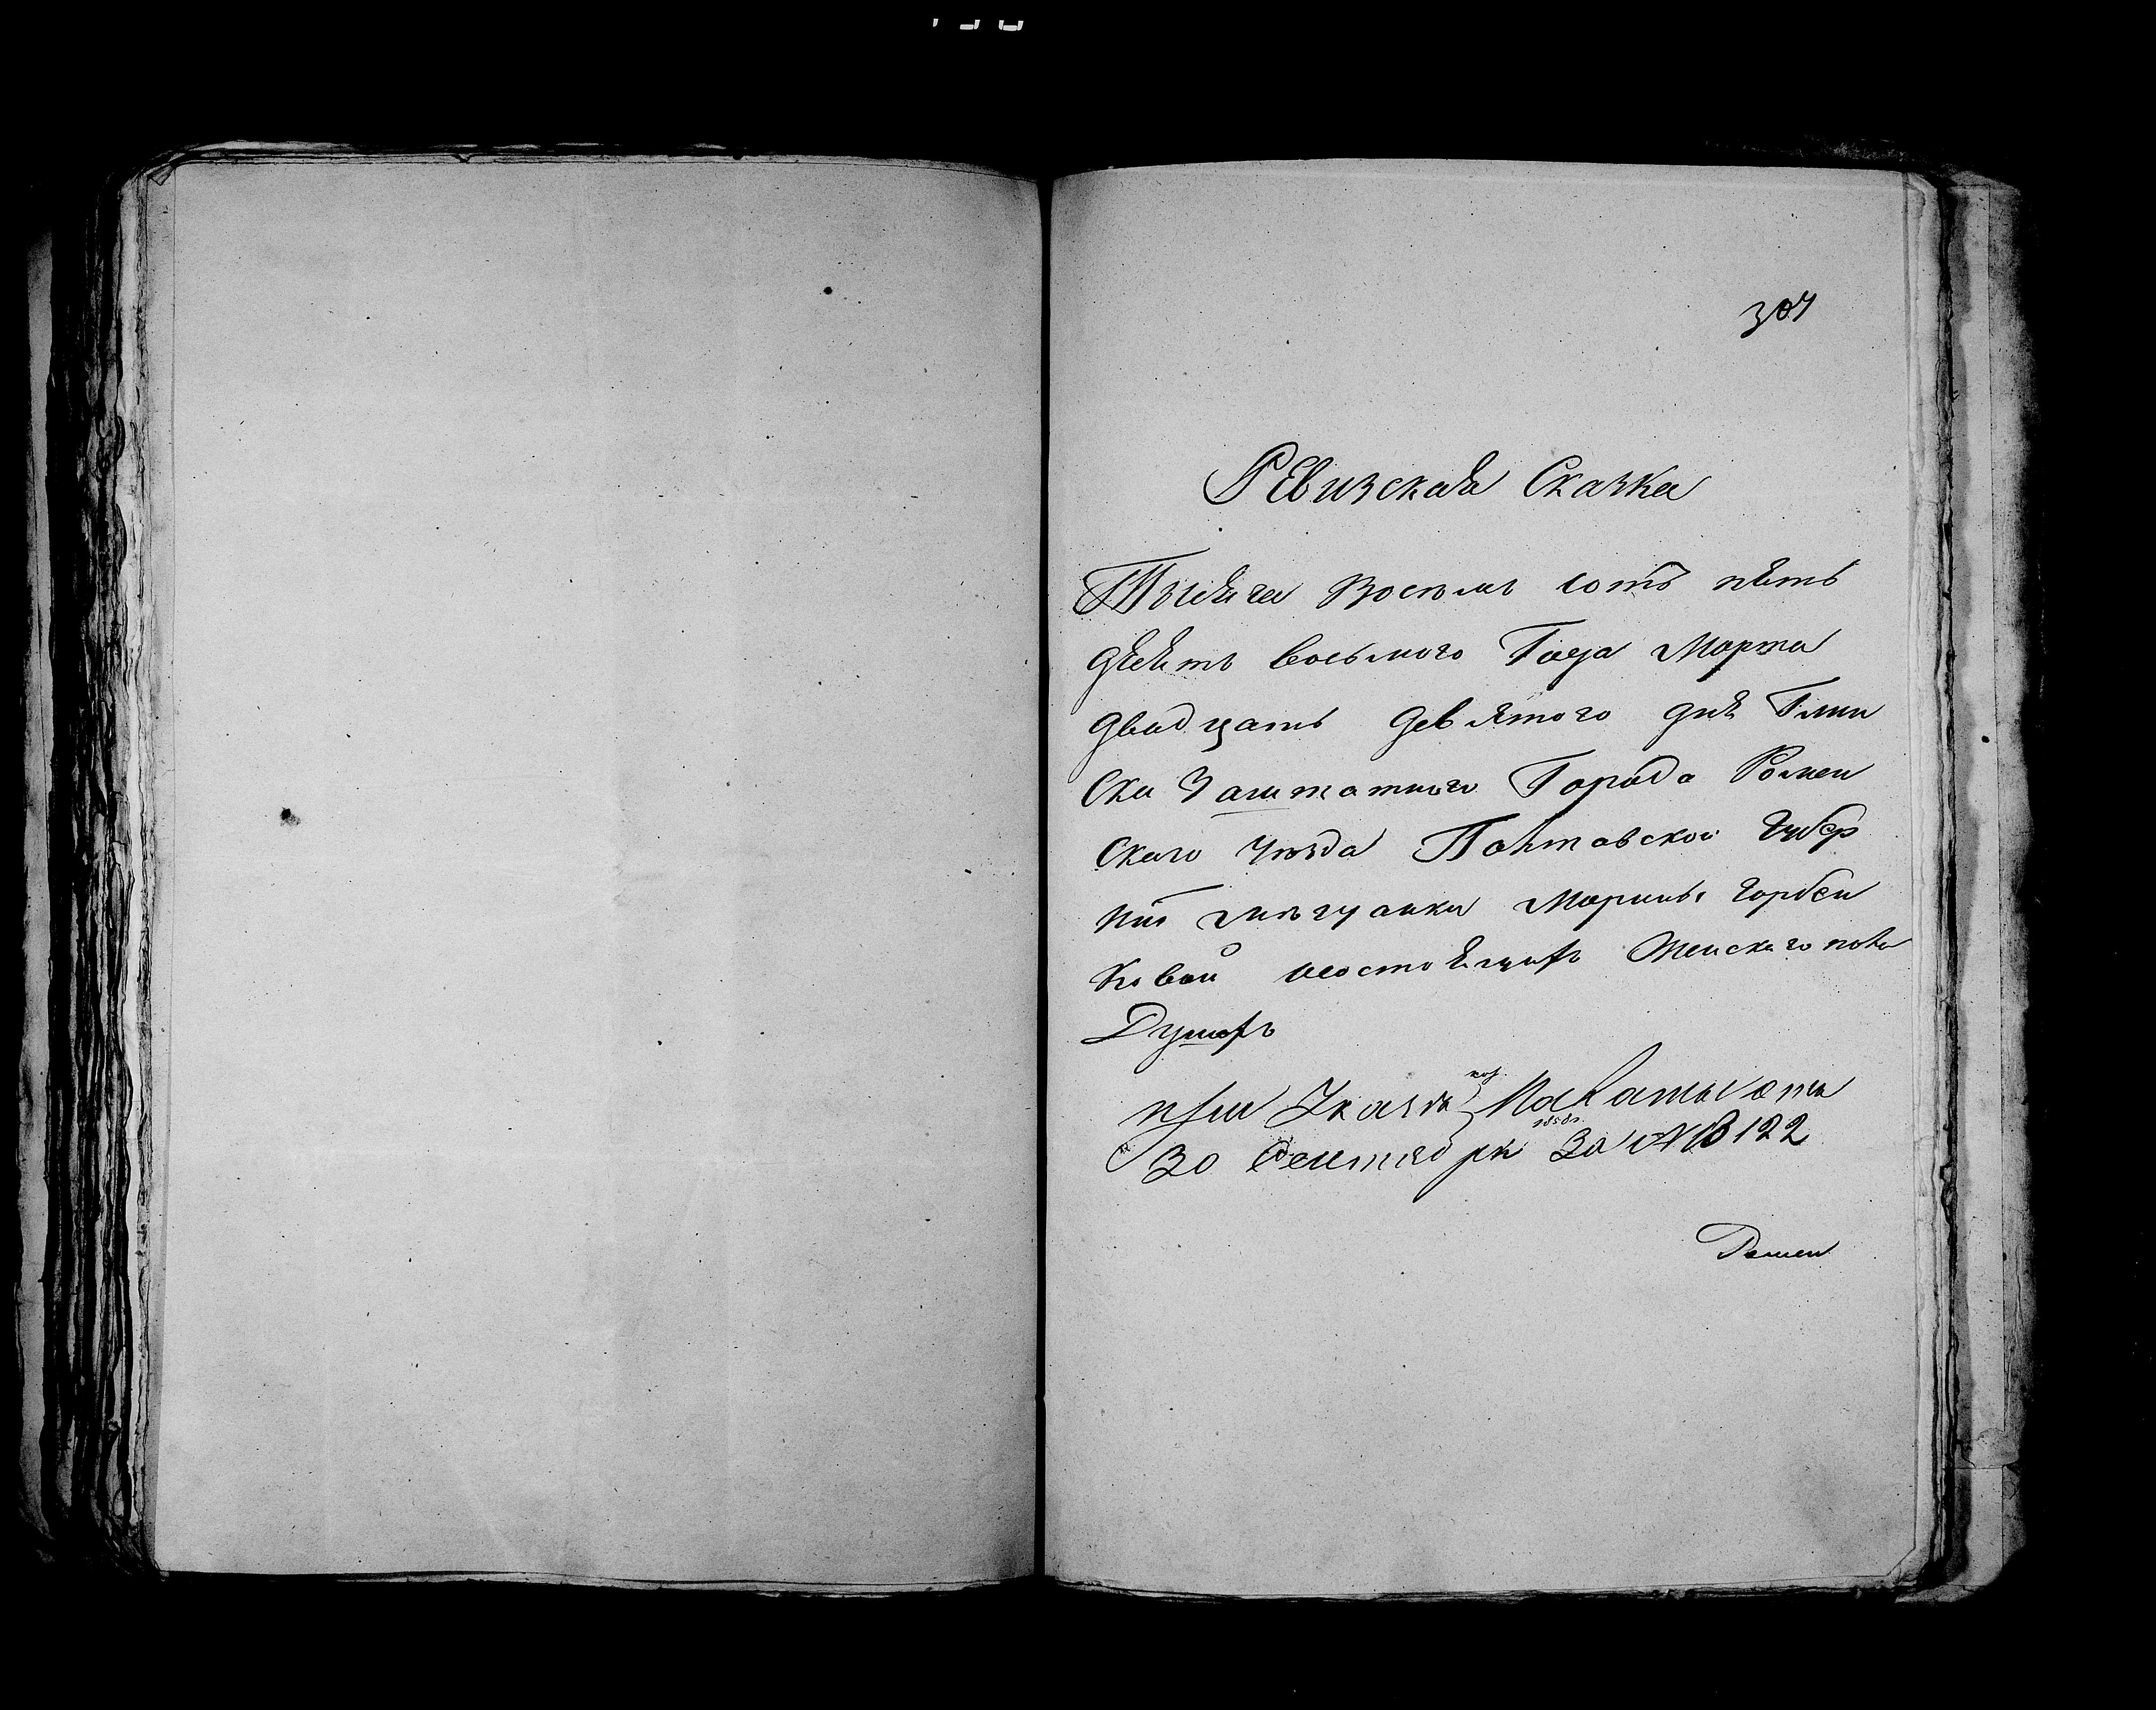 307
Ревизская Сказка
Тысяча Восемь сотъ пять
десятъ восьмого Года Марта
двадцать девятого дня Глин
ска Заштатного Города Ромен
ского Уезда Полтавской Губер
ніи мещанки Марины Горбен
ковой о состоящихъ Женского пола
Душахъ
при Указѣ каз. Палаты отъ
30 Сентября 1858г. За № 122